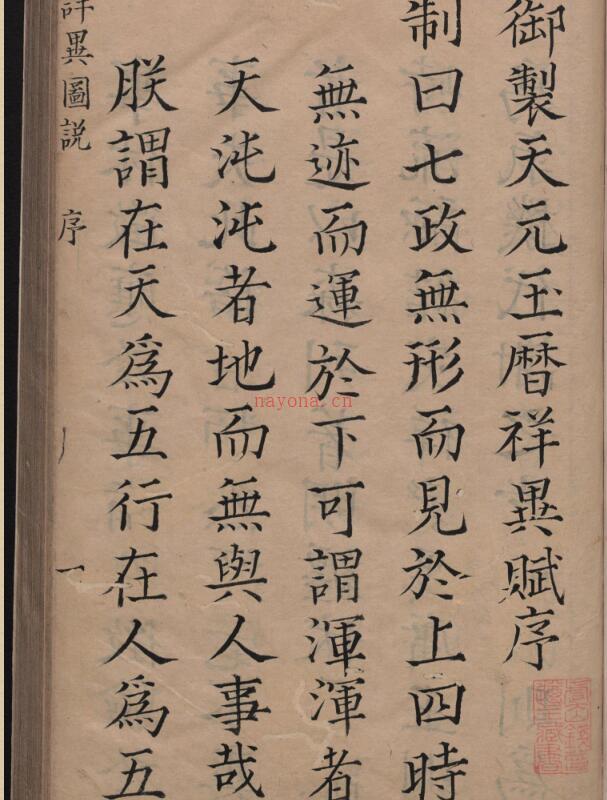 御製天元玉曆祥異賦序
制曰七政無形而見於上四時
無迹而運於下可謂渾渾者
天沌沌者地而無與人事哉
朕謂在天爲五行在人爲五
祥異圖説 序 一
nayona.cn